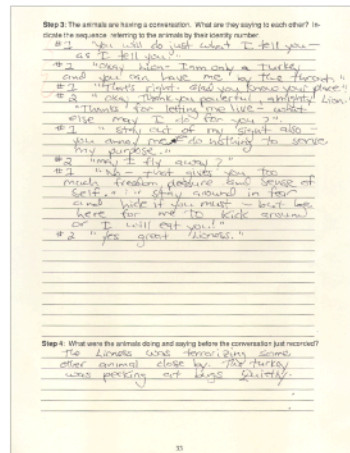 Step 3: The animals are having a conversation. What are they saying to each other? In-
dicate the sequence referring to the animals by their identity number.
#1 "You will do just what I tell you—
as I tell you."
"Okay Lion- I am only a turkey
and you can have me by the throat."
#1 "That's right. Also you know your place"
#2 "Okay Thank you powerful, almighty Lion.
"Thanks for letting me live - what
else may I do for you?".
#1 "Stay out of my sight also -
you annoy me do nothing to serve
my purpose."
#2 "may I fly away?"
#1 "No - that gives you too
much freedom pleasure and sense of
self. stay around in fear
and hide if you must - but be
here for me to kick around
or I will eat you!"
#2 "Yes great Lioness."
Step 4: What were the animals doing and saying before the conversation just recorded?
The Lioness was terrorizing some
other animal close by. The turkey
was pecking at bugs quietly.
33